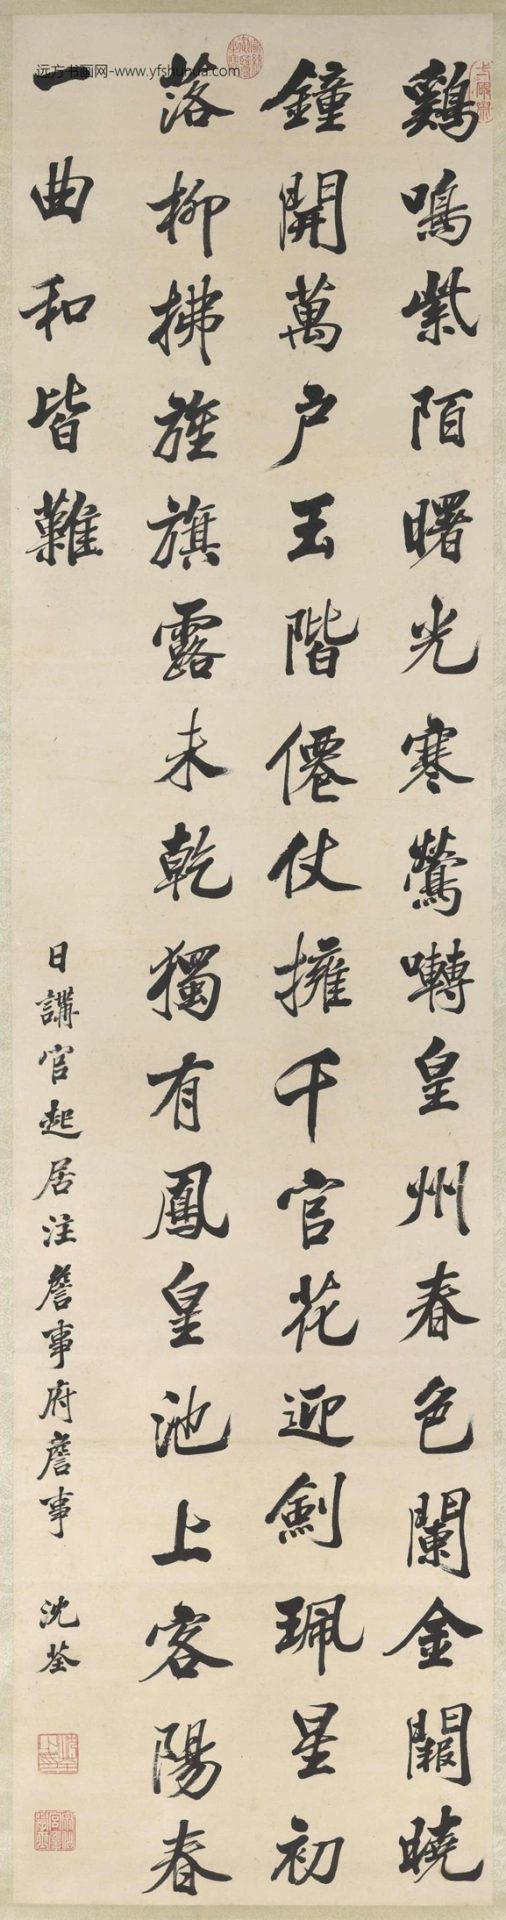 远方书画网-www.yfshuhua.com
鷄鳴紫陌曙光寒鶯囀皇州春色闌金闕曉
鐘開萬户玉階僊仗擁千官花迎劍珮星初
落柳拂旌旗露未乾獨有鳳皇池上客陽春
一曲和皆難
日講官起居注詹事府詹事 沈荃